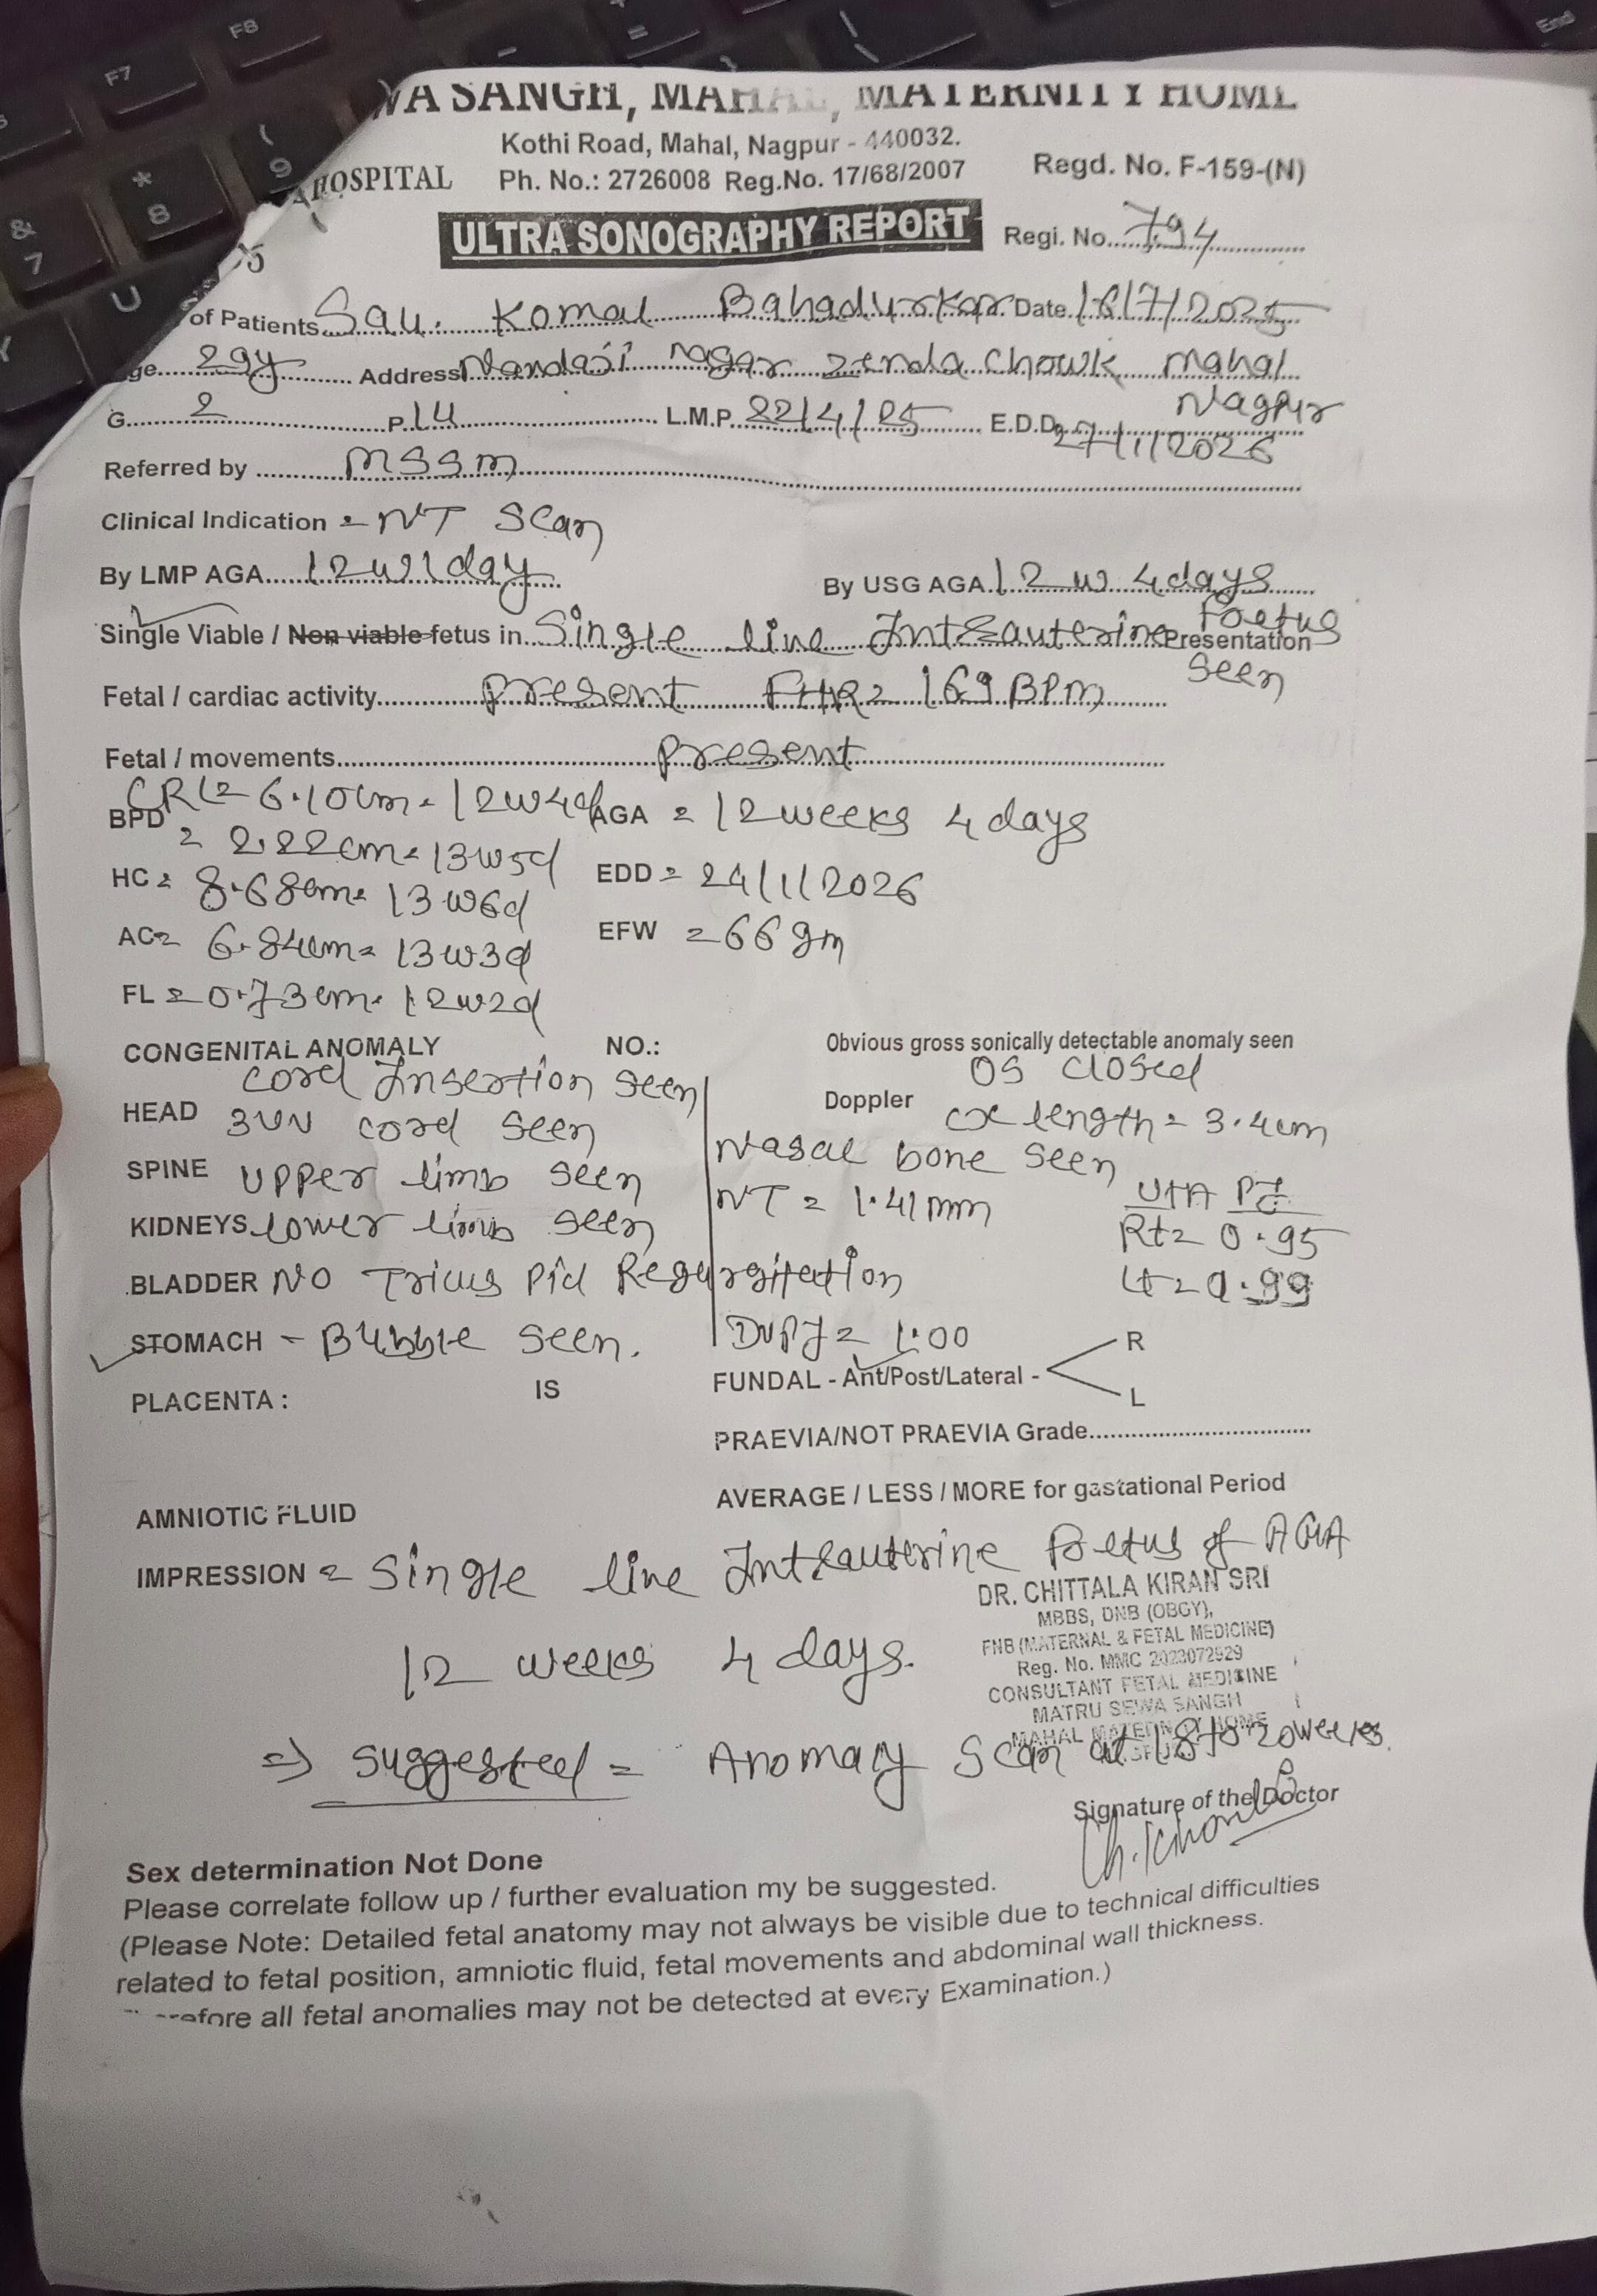 WA SANGH, MAHAL, MATERNITY HOME
Kothi Road, Mahal, Nagpur - 440032.
HOSPITAL Ph. No.: 2726008 Reg.No. 17/68/2007 Regd. No. F-159-(N)
ULTRA SONOGRAPHY REPORT Regi. No. 794
of Patients Sau. Komal Bahadurkar Date 16/7/2025
ge 29y Address Nandaji nagar zenda Chowk mahal
Nagpur
G. 2 P. L.M.P. 22/4/25 E.D.D. 27/1/2026
Referred by MSSM
Clinical Indication = NT Scan
By LMP AGA 12w1day By USG AGA 12 w 4days
Single Viable / Non viable fetus in Single live Intrauterine Foetus Presentation
Seen
Fetal / cardiac activity Present FHR= 169 BPM
Fetal / movements Present
CRL= 6.10cm = 12w4d
BPD = 2.22cm = 13w5d AGA = 12 weeks 4 days
HC = 8.68cm = 13w6d EDD = 24/1/2026
AC= 6.84cm = 13w3d EFW = 66gm
FL = 0.73cm = 12w2d
CONGENITAL ANOMALY NO.: Obvious gross sonically detectable anomaly seen
Cord Insertion Seen OS closed
HEAD 3VV cord seen Doppler cx length = 3.4cm
SPINE Upper limb seen Nasal bone seen
KIDNEYS lower limb seen NT = 1.41mm UtA PI
Rt= 0.95
BLADDER NO Tricus Pid Regurgitation Lt=0.99
STOMACH - Bubble Seen. DVPI = 1.00
PLACENTA : IS FUNDAL - Ant/Post/Lateral - R
L
PRAEVIA/NOT PRAEVIA Grade
AMNIOTIC FLUID AVERAGE / LESS / MORE for gastational Period
IMPRESSION = Single live Intrauterine Foetus of AGA
12 weeks 4 days.
DR. CHITTALA KIRAN SRI
MBBS, DNB (OBGY),
FNB (MATERNAL & FETAL MEDICINE)
Reg. No. MMC 2023072929
CONSULTANT FETAL MEDICINE
MATRU SEWA SANGH
MAHAL MATERNITY HOME
⇒ Suggested = Anomaly Scan at 18 to 20weeks.
Signature of the Doctor
Sex determination Not Done
Please correlate follow up / further evaluation my be suggested.
(Please Note: Detailed fetal anatomy may not always be visible due to technical difficulties
related to fetal position, amniotic fluid, fetal movements and abdominal wall thickness.
refore all fetal anomalies may not be detected at every Examination.)